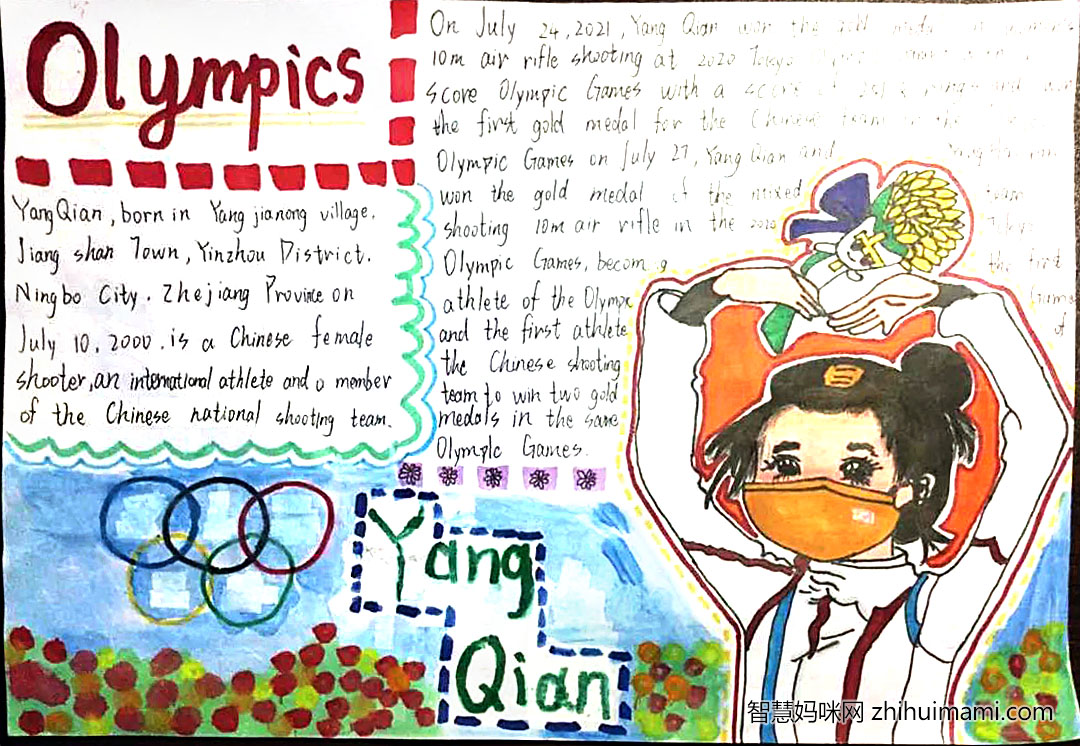 Olympics
YangQian, born in Yang jianong village.
Jiang shan Town, Yinzhou District.
Ningbo City. Zhejiang Province on
July 10, 2000. is a Chinese female
shooter, an international athlete and a member
of the Chinese national shooting team.
On July 24, 2021, Yang Qian won the gold
10m air rifle shooting at 2020 Tokyo
score Olympic Games with a score of
the first gold medal for the Chinese team in the
Olympic Games on July 27, Yang Qian and Yang
won the gold medal of the mixed team
shooting 10m air rifle in the 2020 Tokyo
Olympic Games, becoming the first
athlete of the Olympic Games
and the first athlete of
the Chinese shooting
team to win two gold
medals in the same
Olympic Games.
Yang
Qian
智慧妈咪网 zhihuimami.com